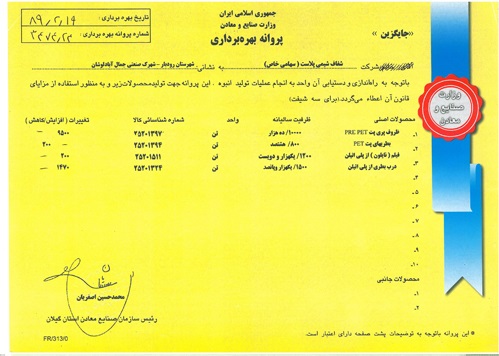 جمهوری اسلامی ایران
وزارت صنایع و معادن
پروانه بهره‌برداری
«جایگزین»
تاریخ بهره برداری: ۸۹/۲/۱۹
شماره پروانه بهره برداری:
شرکت شفاف شیمی پلاست (سهامی خاص) به نشانی: شهرستان رودبار - شهرک صنعتی جمال آباد لوشان
باتوجه به راه‌اندازی و دستیابی آن واحد به انجام عملیات تولید انبوه . این پروانه جهت تولید محصولات زیر و به منظور استفاده از مزایای
قانون آن اعطاء می‌گردد.(برای سه شیفت)
محصولات اصلی ظرفیت سالیانه واحد شماره شناسائی کالا تغییرات (افزایش/کاهش)
۱. ظروف پری پت PRE PET ۱۰۰۰۰/ ده هزار تن ۲۵۲۰۱۳۹۷ ۹۵۰۰ —
۲. بطریهای پت PET ۸۰۰/ هشتصد تن ۲۵۲۰۱۳۹۴ — ۲۰۰
۳. فیلم (نایلون) از پلی اتیلن ۱۲۰۰/ یکهزار و دویست تن ۲۵۲۰۱۵۱۱ ۲۰۰ —
۴. درب بطری از پلی اتیلن ۱۵۰۰/ یکهزار وپانصد تن ۲۵۲۰۱۳۲۴ ۱۴۷۰ —
۵.
۶.
۷.
۸.
۹.
۱۰.
محصولات جانبی
۱.
۲.
وزارت
صنایع و
معادن
محمدحسین اصغریان
رئیس سازمان صنایع معادن استان گیلان
* این پروانه باتوجه به توضیحات پشت صفحه دارای اعتبار است.
FR/313/0